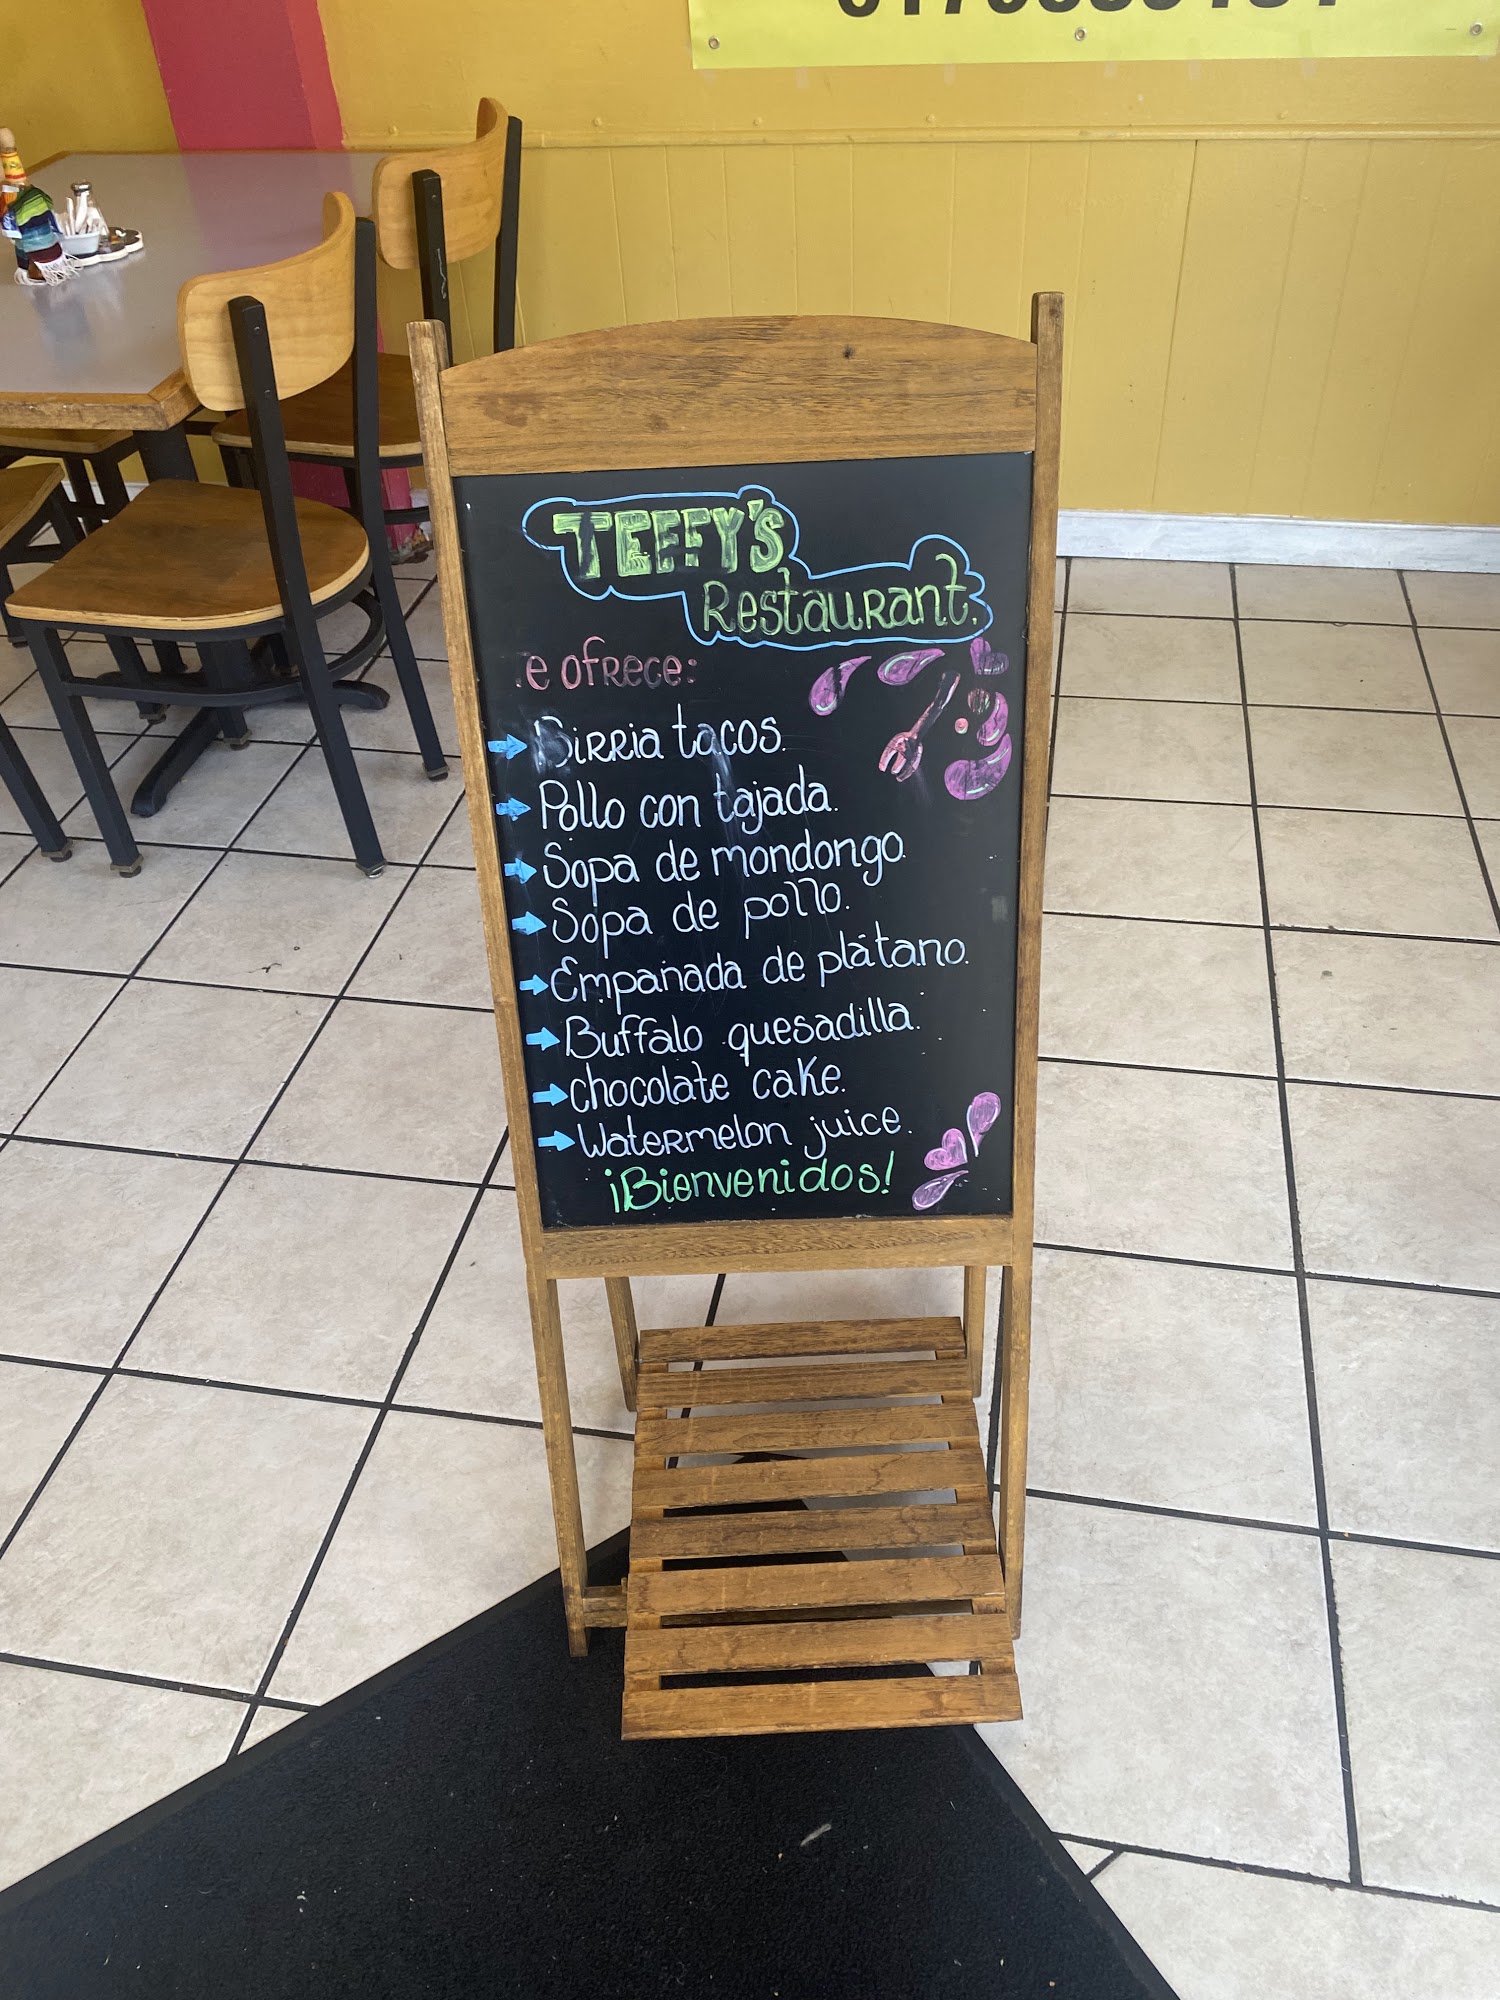 TEFFY'S
Restaurant.
Te ofrece:
Birria tacos.
Pollo con tajada.
Sopa de mondongo.
Sopa de pollo.
Empañada de plátano.
Buffalo quesadilla.
chocolate cake.
Watermelon juice.
¡Bienvenidos!